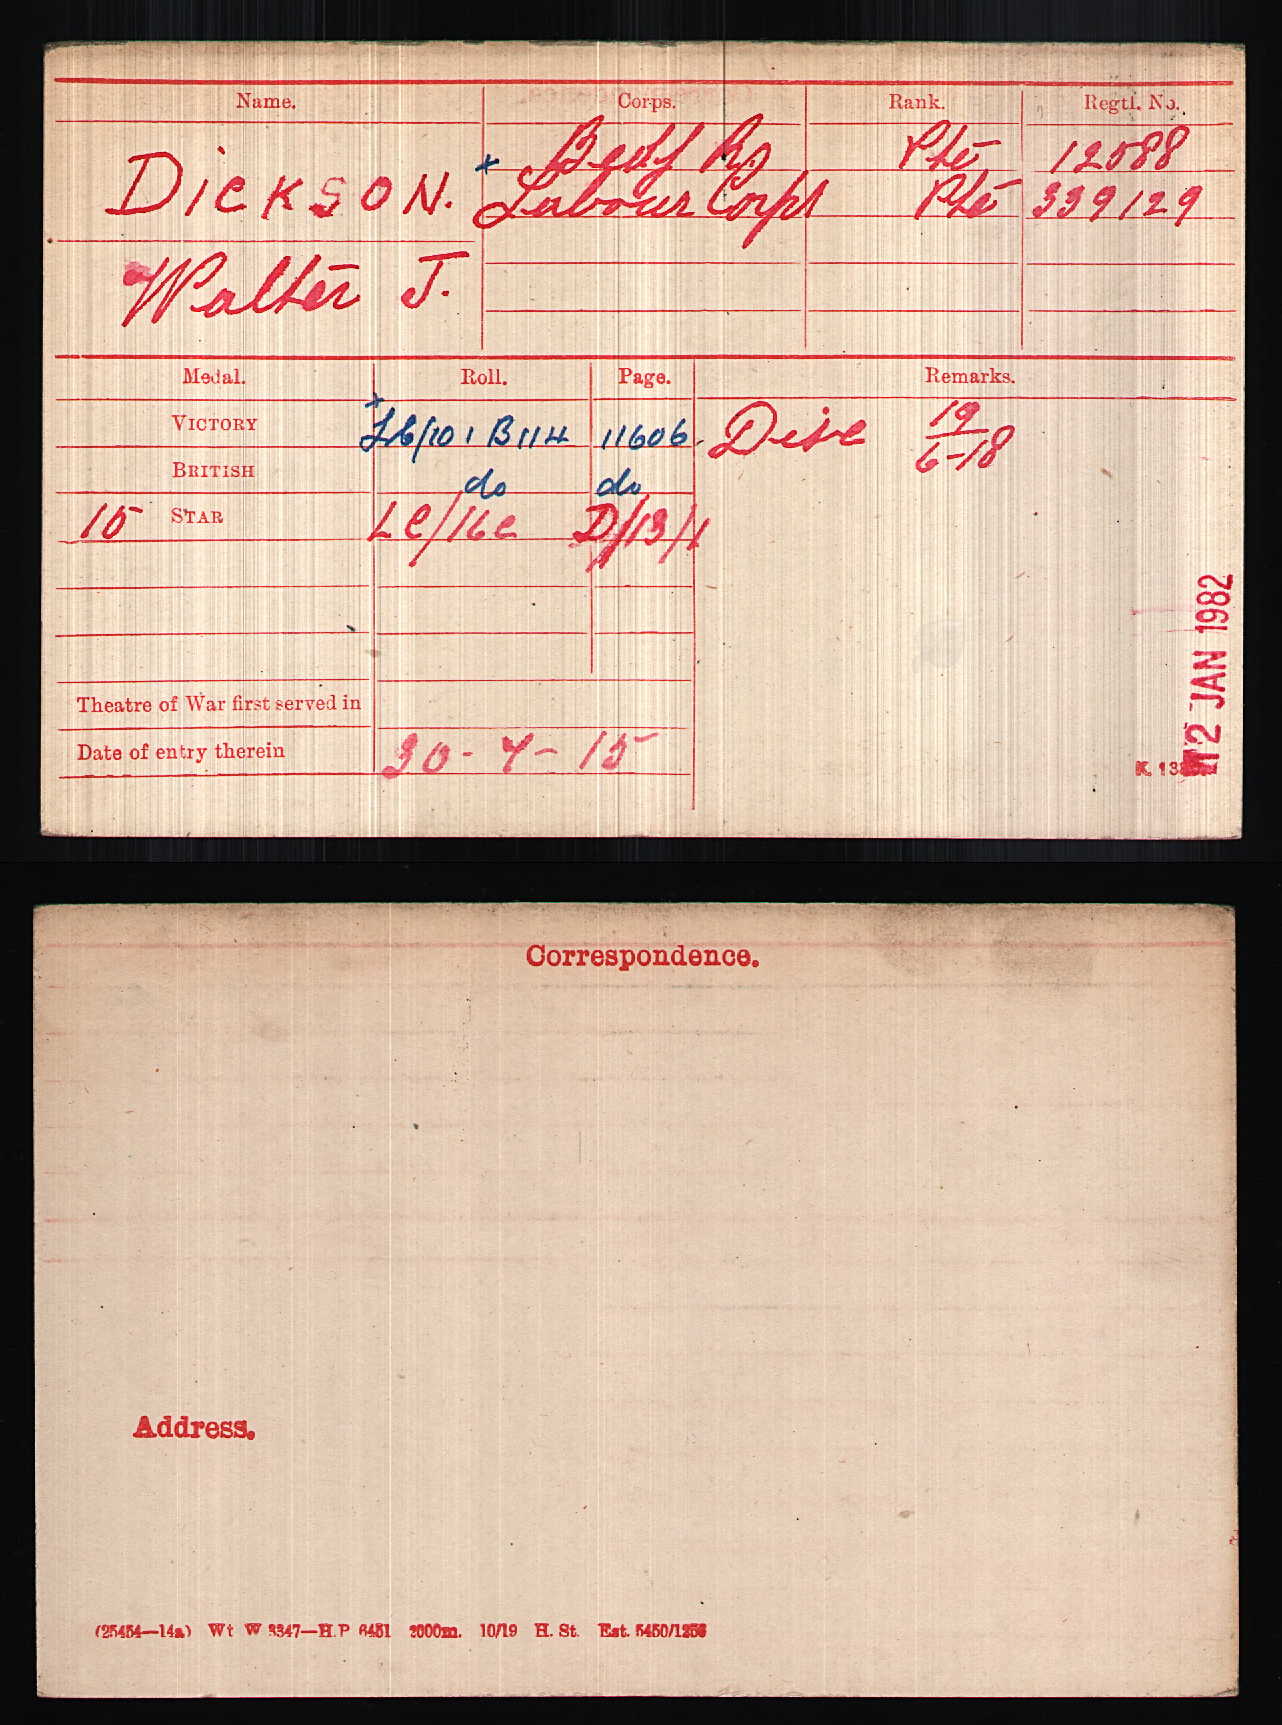 Name. Corps. Rank. Regtl. No.
DICKSON. × Bedf R. Pte 12088
Labour Corps Pte 339129
Walter J.
Medal. Roll. Page. Remarks.
VICTORY × Lb/101B114 11606. Disc 19/6-18
BRITISH do do
15 STAR LC/16C D/13/1
Theatre of War first served in
Date of entry therein 30-7-15
12 JAN 1982
Correspondence.
Address.
(25454—14a) Wt W 3347—H.P 6451 2000m. 10/19 H. St. Est. 5450/1256